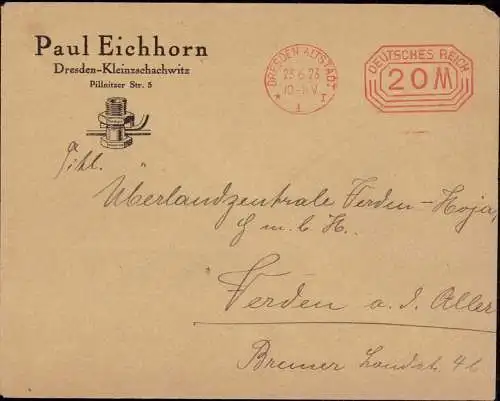 Paul Eichhorn
Dresden-Kleinzschachwitz
Pillnitzer Str. 5
DRESDEN ALTSTADT
23.6.23
10-11 V.
* 1 I
DEUTSCHES REICH
20 M
Überlandzentrale Verden-Hoja,
G m. b H..
Verden a. d. Aller
Bremer Landstr. 4b